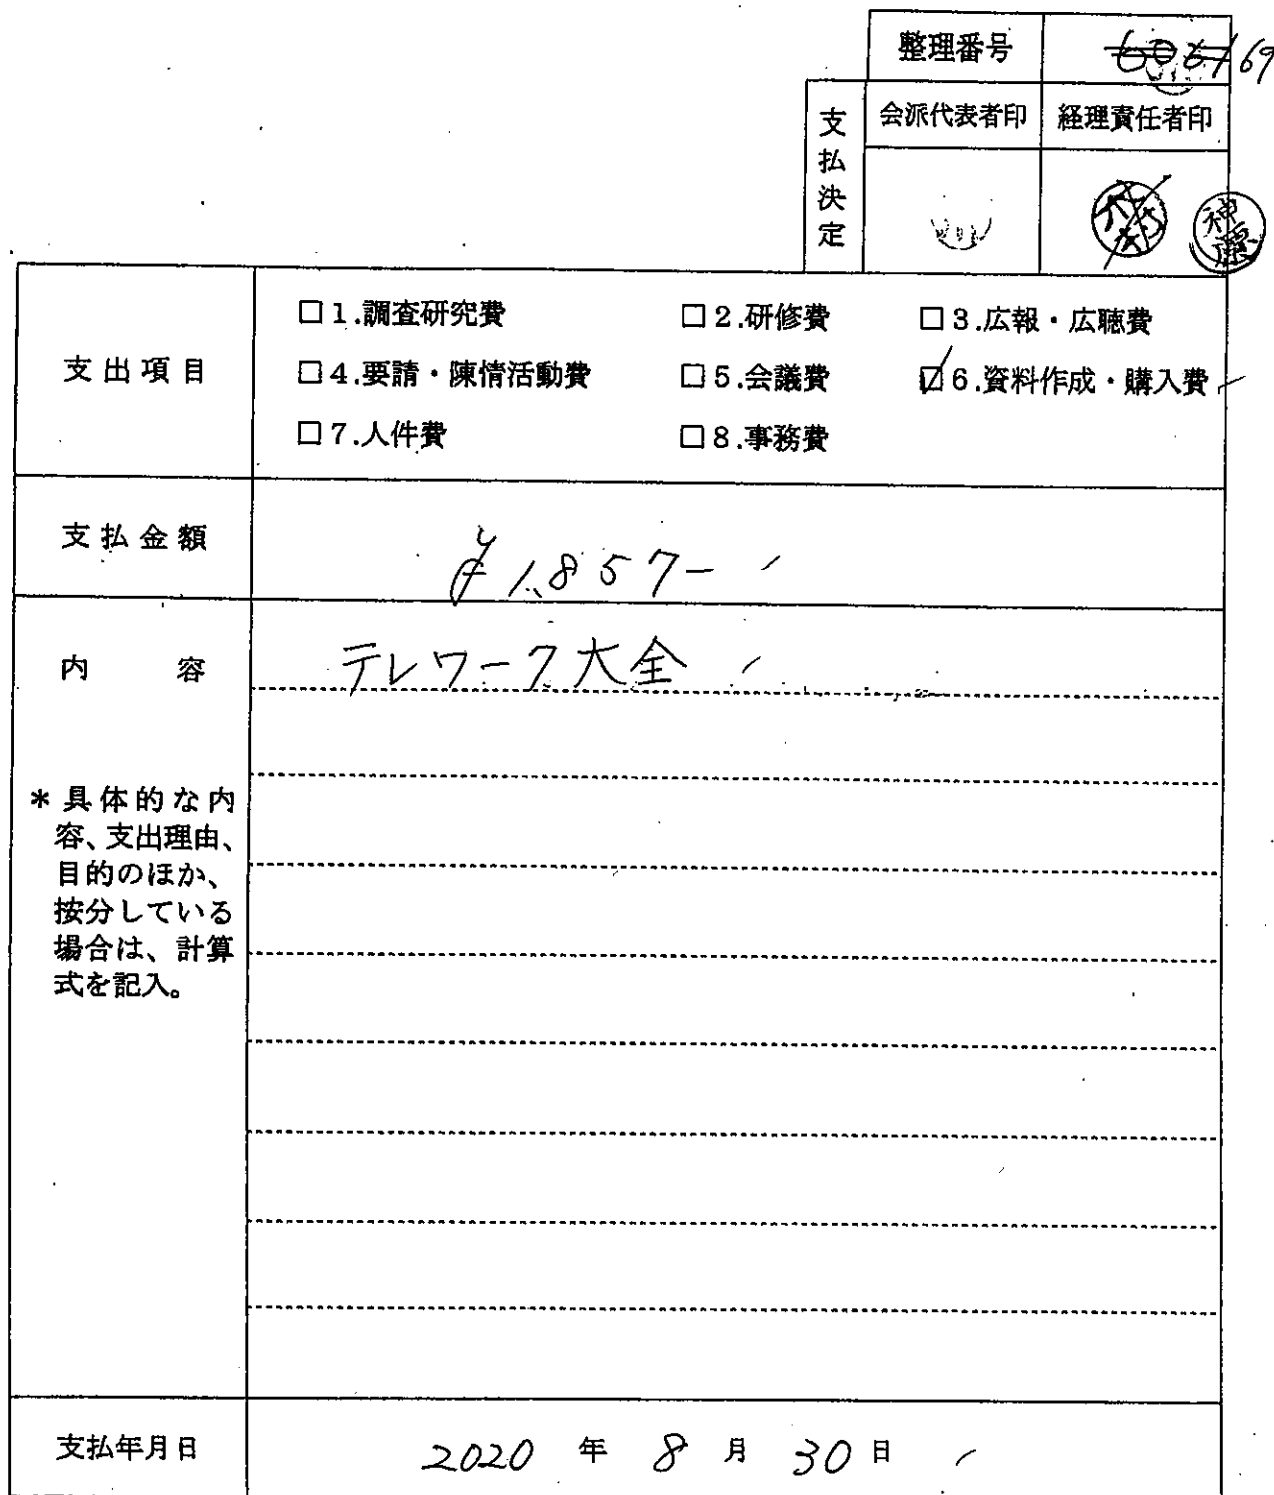 整理番号 69
支払決定
会派代表者印 経理責任者印
神原
支出項目
□1.調査研究費 □2.研修費 □3.広報・広聴費
□4.要請・陳情活動費 □5.会議費 ☑6.資料作成・購入費
□7.人件費 □8.事務費
支払金額
¥1,857-
内容
テレワーク大全
*具体的な内
容、支出理由、
目的のほか、
按分している
場合は、計算
式を記入。
支払年月日 2020年8月30日